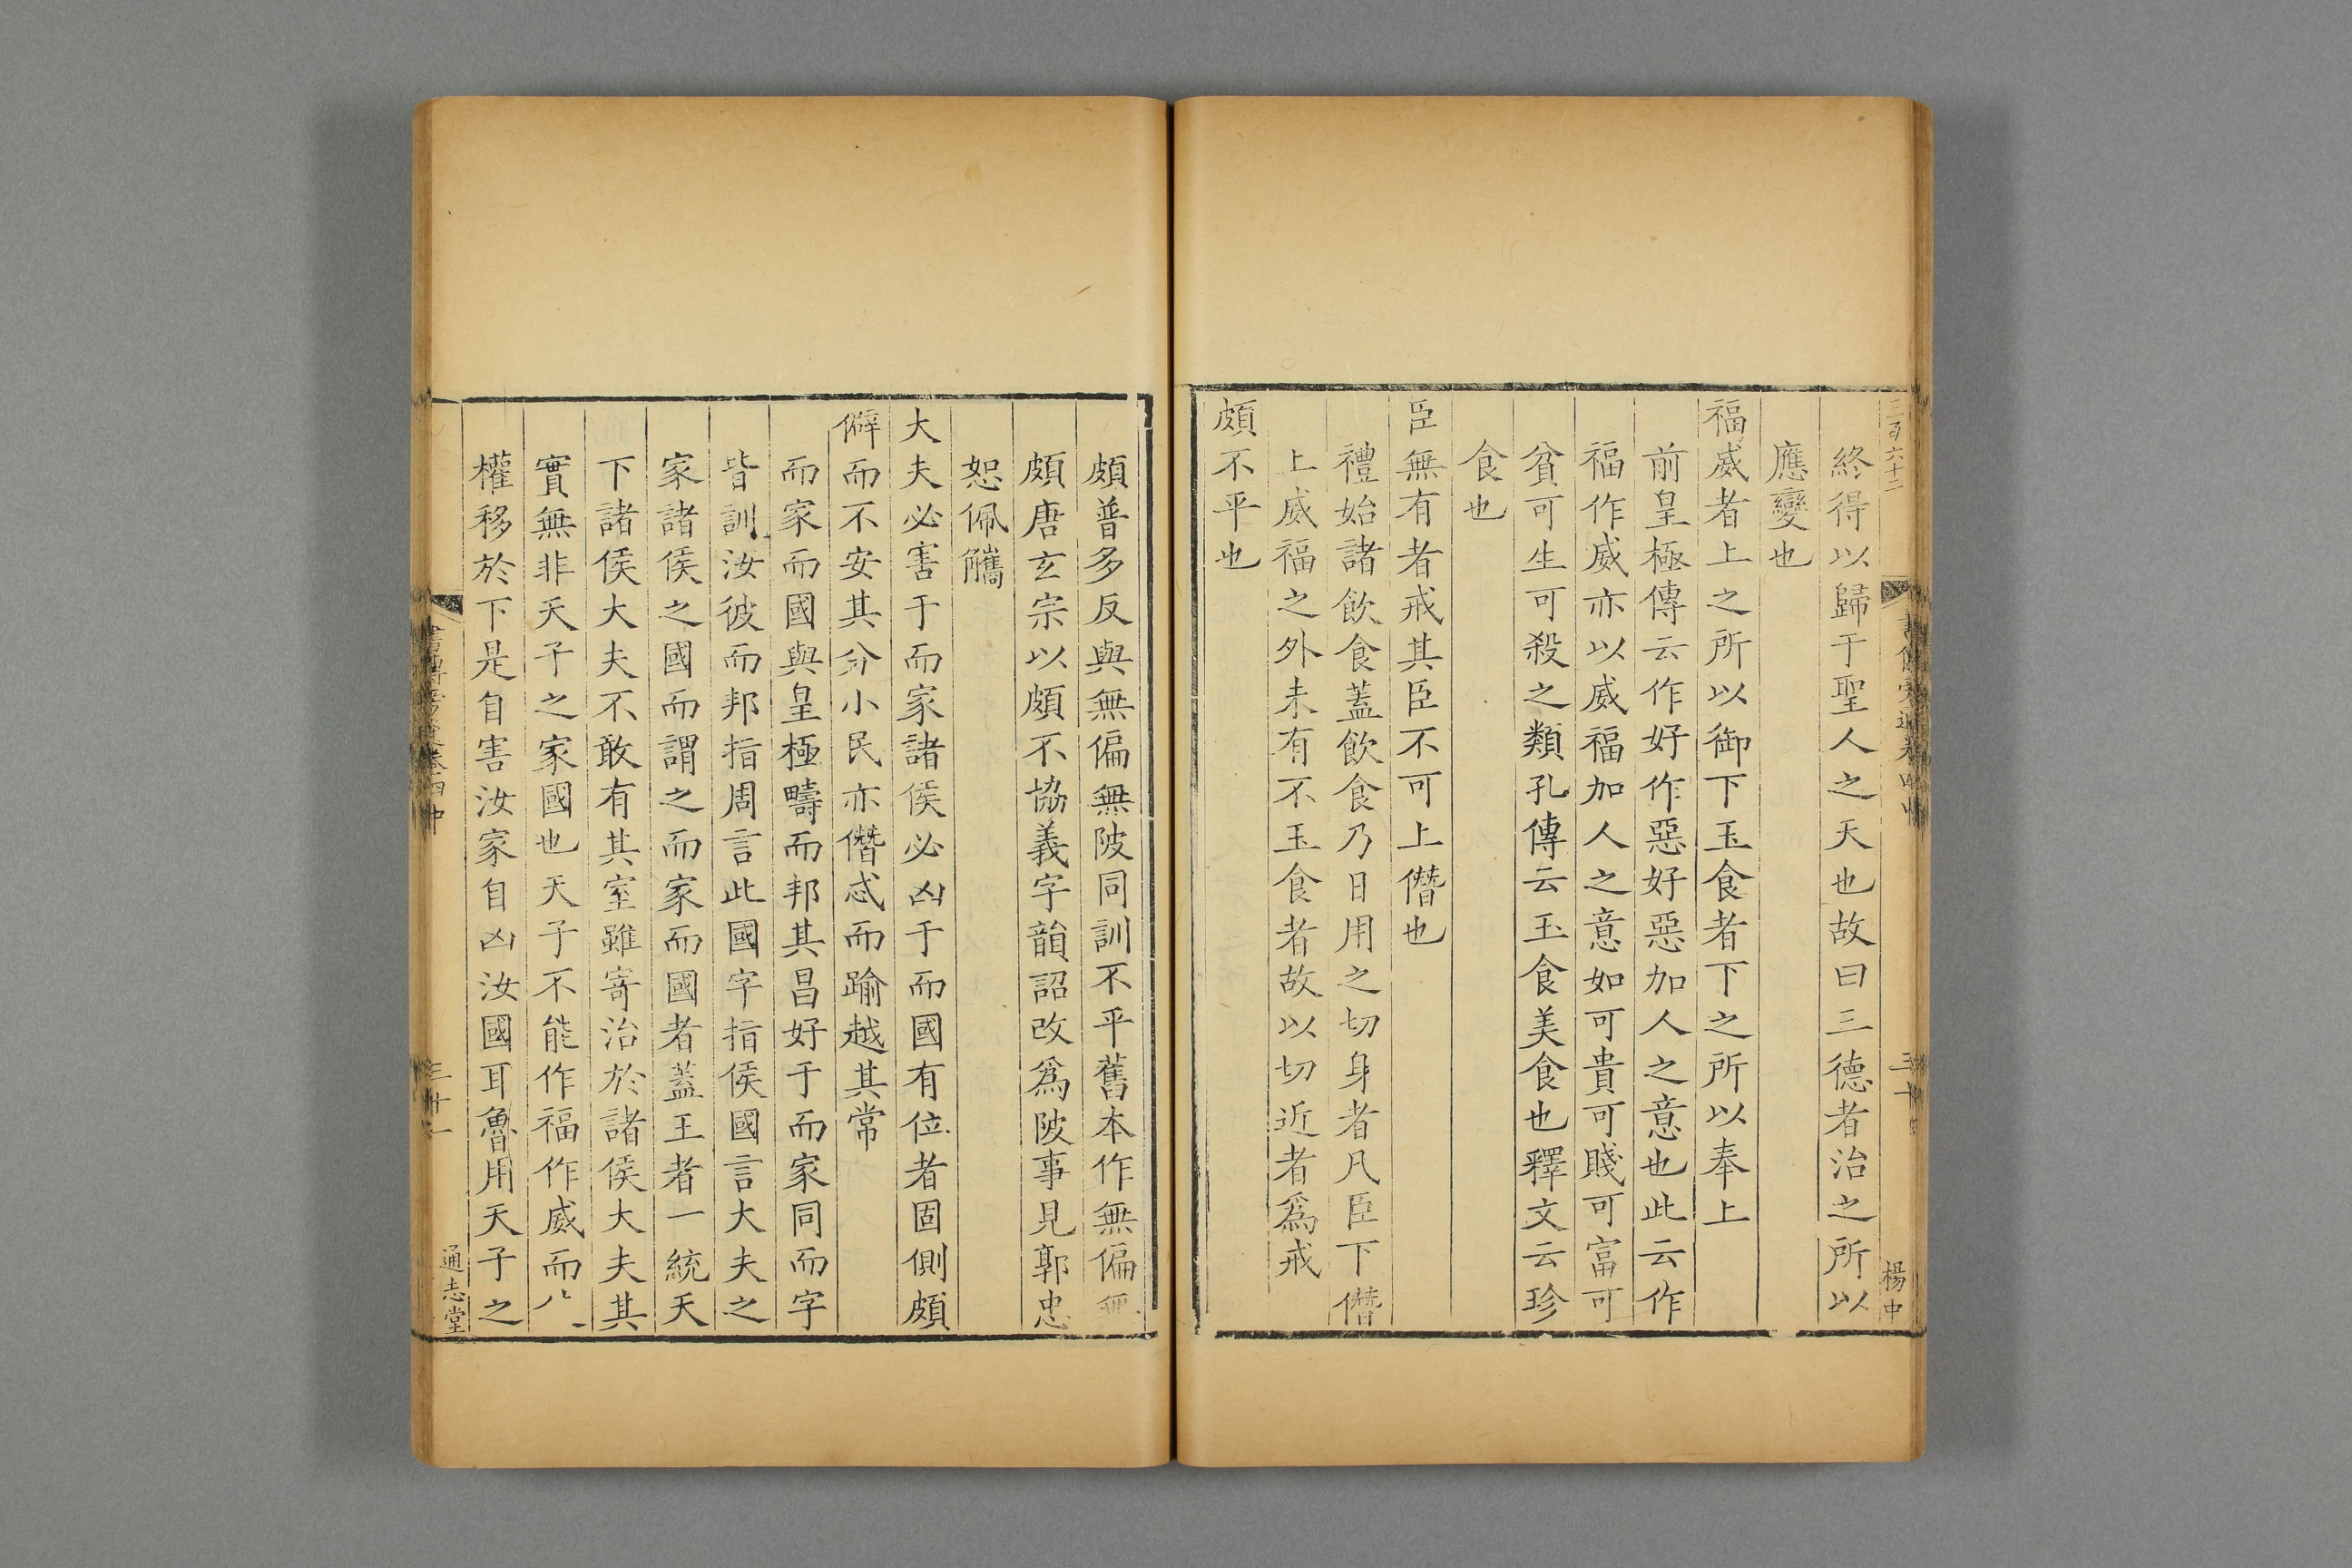 終得以歸于聖人之天也故曰三德者治之所以
應變也
福威者上之所以御下玉食者下之所以奉上
前皇極傳云作好作惡好惡加人之意也此云作
福作威亦以威福加人之意如可貴可賤可富可
貧可生可殺之類孔傳云玉食美食也釋文云珍
食也
臣無有者戒其臣不可上僭也
禮始諸飲食蓋飲食乃日用之切身者凡臣下僭
上威福之外未有不玉食者故以切近者爲戒
頗不平也
頗普多反與無偏無陂同訓不平舊本作無偏無
頗唐玄宗以頗不協義字韻詔改爲陂事見郭忠
恕佩觿
大夫必害于而家諸侯必凶于而國有位者固側頗
僻而不安其分小民亦僭忒而踰越其常
而家而國與皇極疇而邦其昌好于而家同而字
皆訓汝彼而邦指周言此國字指侯國言大夫之
家諸侯之國而謂之而家而國者蓋王者一統天
下諸侯大夫不敢有其室雖寄治於諸侯大夫其
實無非天子之家國也天子不能作福作威而
權移於下是自害汝家自凶汝國耳魯用天子之
三十一
通志堂
楊中